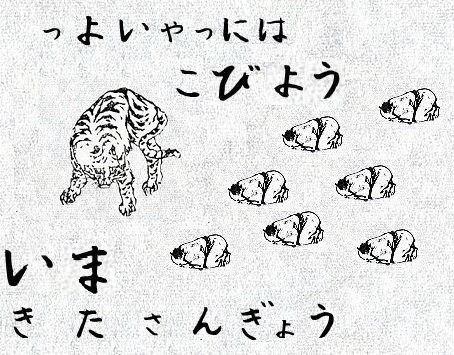 っよいゃっには
こびよう
いま
きたさんぎょう